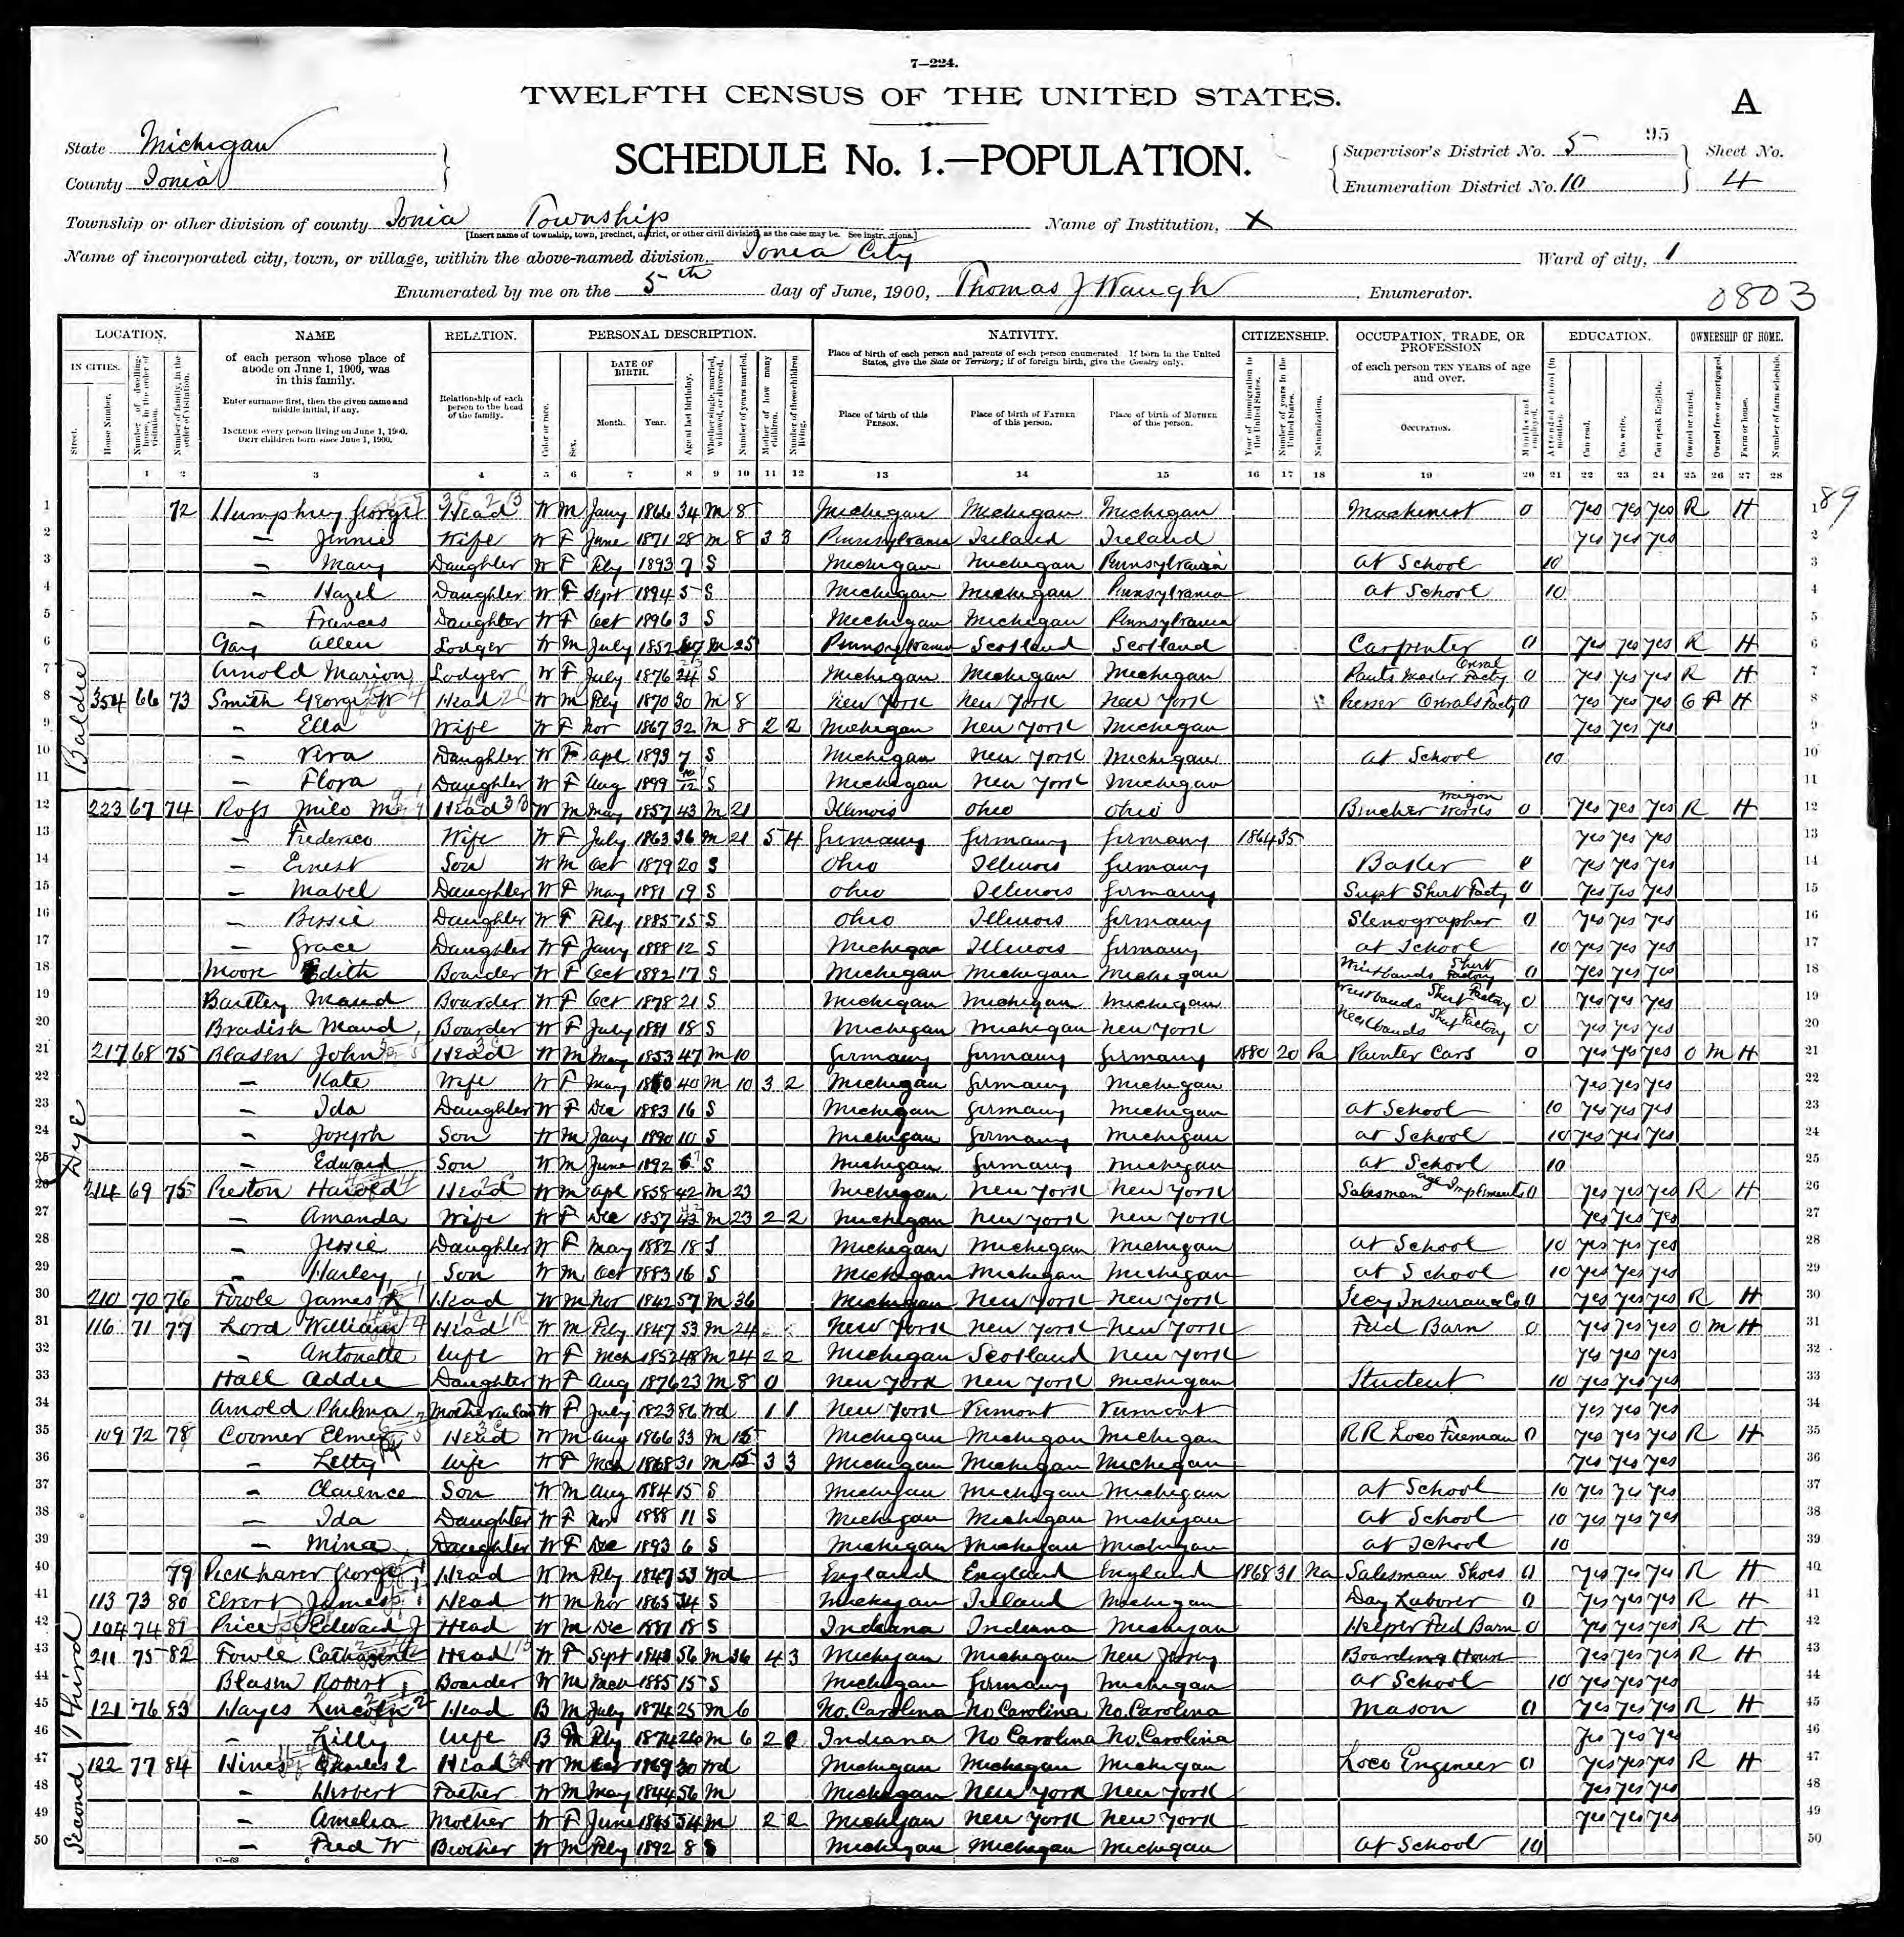 7—224.
TWELFTH CENSUS OF THE UNITED STATES.
A
State Michigan
County Ionia
SCHEDULE No. 1.—POPULATION.
Supervisor's District No. 5 95 Sheet No.
Enumeration District No. 10 4
Township or other division of county Ionia Township Name of Institution, X
[Insert name of township, town, precinct, district, or other civil division, as the case may be. See instructions.]
Name of incorporated city, town, or village, within the above-named division, Ionia City Ward of city, 1
Enumerated by me on the 5th day of June, 1900, Thomas J Waugh, Enumerator.
0803
LOCATION. NAME RELATION. PERSONAL DESCRIPTION. NATIVITY. CITIZENSHIP. OCCUPATION, TRADE, OR PROFESSION EDUCATION. OWNERSHIP OF HOME.
IN CITIES. of each person whose place of abode on June 1, 1900, was in this family.
Enter surname first, then the given name and middle initial, if any.
INCLUDE every person living on June 1, 1900. OMIT children born since June 1, 1900.
Relationship of each person to the head of the family.
DATE OF BIRTH. Month. Year.
Place of birth of each person and parents of each person enumerated. If born in the United States, give the State or Territory; if of foreign birth, give the Country only.
Place of birth of this PERSON. Place of birth of FATHER of this person. Place of birth of MOTHER of this person.
of each person TEN YEARS of age and over.
OCCUPATION.
1 2 3 4 5 6 7 8 9 10 11 12 13 14 15 16 17 18 19 20 21 22 23 24 25 26 27 28
89
1 72 Humphrey George Head W M Jany 1866 34 M 8 Michigan Michigan Michigan Machinist 0 yes yes yes R H 1
2 — Jennie Wife W F June 1871 28 M 8 3 3 Pennsylvania Ireland Ireland yes yes yes 2
3 — Mary Daughter W F Feby 1893 7 S Michigan Michigan Pennsylvania at School 10 3
4 — Hazel Daughter W F Sept 1894 5 S Michigan Michigan Pennsylvania at School 10 4
5 — Frances Daughter W F Oct 1896 3 S Michigan Michigan Pennsylvania 5
6 Gay Allen Lodger W M July 1852 47 M 25 Pennsylvania Scotland Scotland Carpenter 0 yes yes yes R H 6
7 Arnold Marion Lodger W F July 1876 S Michigan Michigan Michigan Pants Maker Factry 0 yes yes yes R H 7
Baldie
8 354 66 73 Smith George W Head W M Feby 1870 30 M 8 New York New York New York Facty 0 yes yes yes O F H 8
9 — Ella Wife W F Nov 1867 32 M 8 2 2 Michigan New York Michigan yes yes yes 9
10 — Vera Daughter W F Apl 1893 7 S Michigan New York Michigan at School 10 10
11 — Flora Daughter W F Aug 1899 10/12 S Michigan New York Michigan 11
12 223 67 74 Rofs Milo M Head W M May 1857 43 M 21 Illinois Ohio Ohio Wagon Works 0 yes yes yes R H 12
13 — Frederica Wife W F July 1863 36 M 21 5 4 Germany Germany Germany 1864 35 yes yes yes 13
14 — Ernest Son W M Oct 1879 20 S Ohio Illinois Germany Baker 0 yes yes yes 14
15 — Mabel Daughter W F May 1881 19 S Ohio Illinois Germany Supt Shirt Facty 0 yes yes yes 15
16 — Bessie Daughter W F Feby 1885 15 S Ohio Illinois Germany Stenographer 0 yes yes yes 16
17 — Grace Daughter W F Jany 1888 12 S Michigan Illinois Germany at School 10 yes yes yes 17
18 Moore Edith Boarder W F Oct 1882 17 S Michigan Michigan Michigan Wristbands Shirt Factory 0 yes yes yes 18
19 Bartley Maud Boarder W F Oct 1878 21 S Michigan Michigan Michigan Wristbands Shirt Factory 0 yes yes yes 19
20 Bradish Maud Boarder W F July 1881 18 S Michigan Michigan New York Neckbands Shirt Factory 0 yes yes yes 20
Dye
21 217 68 75 Blasen John Head W M May 1853 47 M 10 Germany Germany Germany 1880 20 Pa Painter Cars 0 yes yes yes O M H 21
22 — Kate Wife W F May 1860 40 M 10 3 2 Michigan Germany Michigan yes yes yes 22
23 — Ida Daughter W F Dec 1883 16 S Michigan Germany Michigan at School 10 yes yes yes 23
24 — Joseph Son W M Jany 1890 10 S Michigan Germany Michigan at School 10 yes yes yes 24
25 — Edward Son W M June 1892 S Michigan Germany Michigan at School 10 25
26 214 69 75 Preston Harold Head W M Apl 1858 42 M 23 Michigan New York New York Salesman Agr Impliments 0 yes yes yes R H 26
27 — Amanda Wife W F Dec 1857 M 23 2 2 Michigan New York New York yes yes yes 27
28 — Jessie Daughter W F May 1882 18 S Michigan Michigan Michigan at School 10 yes yes yes 28
29 — Harley Son W M Oct 1883 16 S Michigan Michigan Michigan at School 10 yes yes yes 29
30 210 70 76 Fowle James K Head W M Nov 1842 57 M 36 Michigan New York New York Secy Insurance Co 0 yes yes yes R H 30
31 116 71 77 Lord William Head W M Feby 1847 53 M 24 New York New York New York Feed Barn 0 yes yes yes O M H 31
32 — Antonette Wife W F Mch 1852 48 M 24 2 2 Michigan Scotland New York yes yes yes 32
33 Hall Addie Daughter W F Aug 1876 23 M 8 0 New York New York Michigan Student 10 yes yes yes 33
34 Arnold Phelma Mother in law W F July 1823 86 Wd 1 1 New York Vermont Vermont yes yes yes 34
35 109 72 78 Coomer Elmer Head W M Aug 1866 33 M 15 Michigan Michigan Michigan RR Loco Fireman 0 yes yes yes R H 35
36 — Letty Wife W F Mch 1868 31 M 15 3 3 Michigan Michigan Michigan yes yes yes 36
37 — Clarence Son W M Aug 1884 15 S Michigan Michigan Michigan at School 10 yes yes yes 37
38 — Ida Daughter W F Nov 1888 11 S Michigan Michigan Michigan at School 10 yes yes yes 38
39 — Mina Daughter W F Dec 1893 6 S Michigan Michigan Michigan at School 10 39
40 79 Peckhaver George Head W M Feby 1847 53 Wd England England England 1868 31 Na Salesman Shoes 0 yes yes yes R H 40
41 113 73 80 Elvert James Head W M Nov 1865 34 S Michigan Ireland Michigan Day Laborer 0 yes yes yes R H 41
Third
42 104 74 81 Price Edward J Head W M Dec 1881 18 S Indiana Indiana Michigan Helper Feed Barn 0 yes yes yes R H 42
43 211 75 82 Fowle Catharine Head W F Sept 1843 56 M 36 4 3 Michigan Michigan New Jersey Boarding House yes yes yes R H 43
44 Blasen Robert Boarder W M Mch 1885 15 S Michigan Germany Michigan at School 10 yes yes yes 44
45 121 76 83 Hayes Lincoln Head B M July 1874 25 M 6 No. Carolina No Carolina No. Carolina Mason 0 yes yes yes R H 45
46 — Lilly Wife B F Feby 1874 26 M 6 2 Indiana No Carolina No. Carolina yes yes yes 46
Second
47 122 77 84 Hines Charles L Head W M Oct 1869 30 Wd Michigan Michigan Michigan Loco Engineer 0 yes yes yes R H 47
48 — Herbert Father W M May 1844 56 M Michigan New York New York yes yes yes 48
49 — Amelia Mother W F June 1845 54 M 2 2 Michigan New York New York yes yes yes 49
50 — Fred W Brother W M Feby 1892 8 S Michigan Michigan Michigan at School 10 50